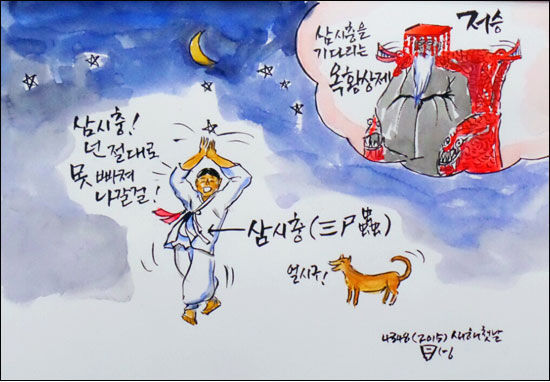 저승
삼시충을
기다리는
옥황상제
삼시충!
넌 절대로
못 빠져
나갈걸!
삼시충(三尸蟲)
얼시구!
4348(2015) 새해 첫날